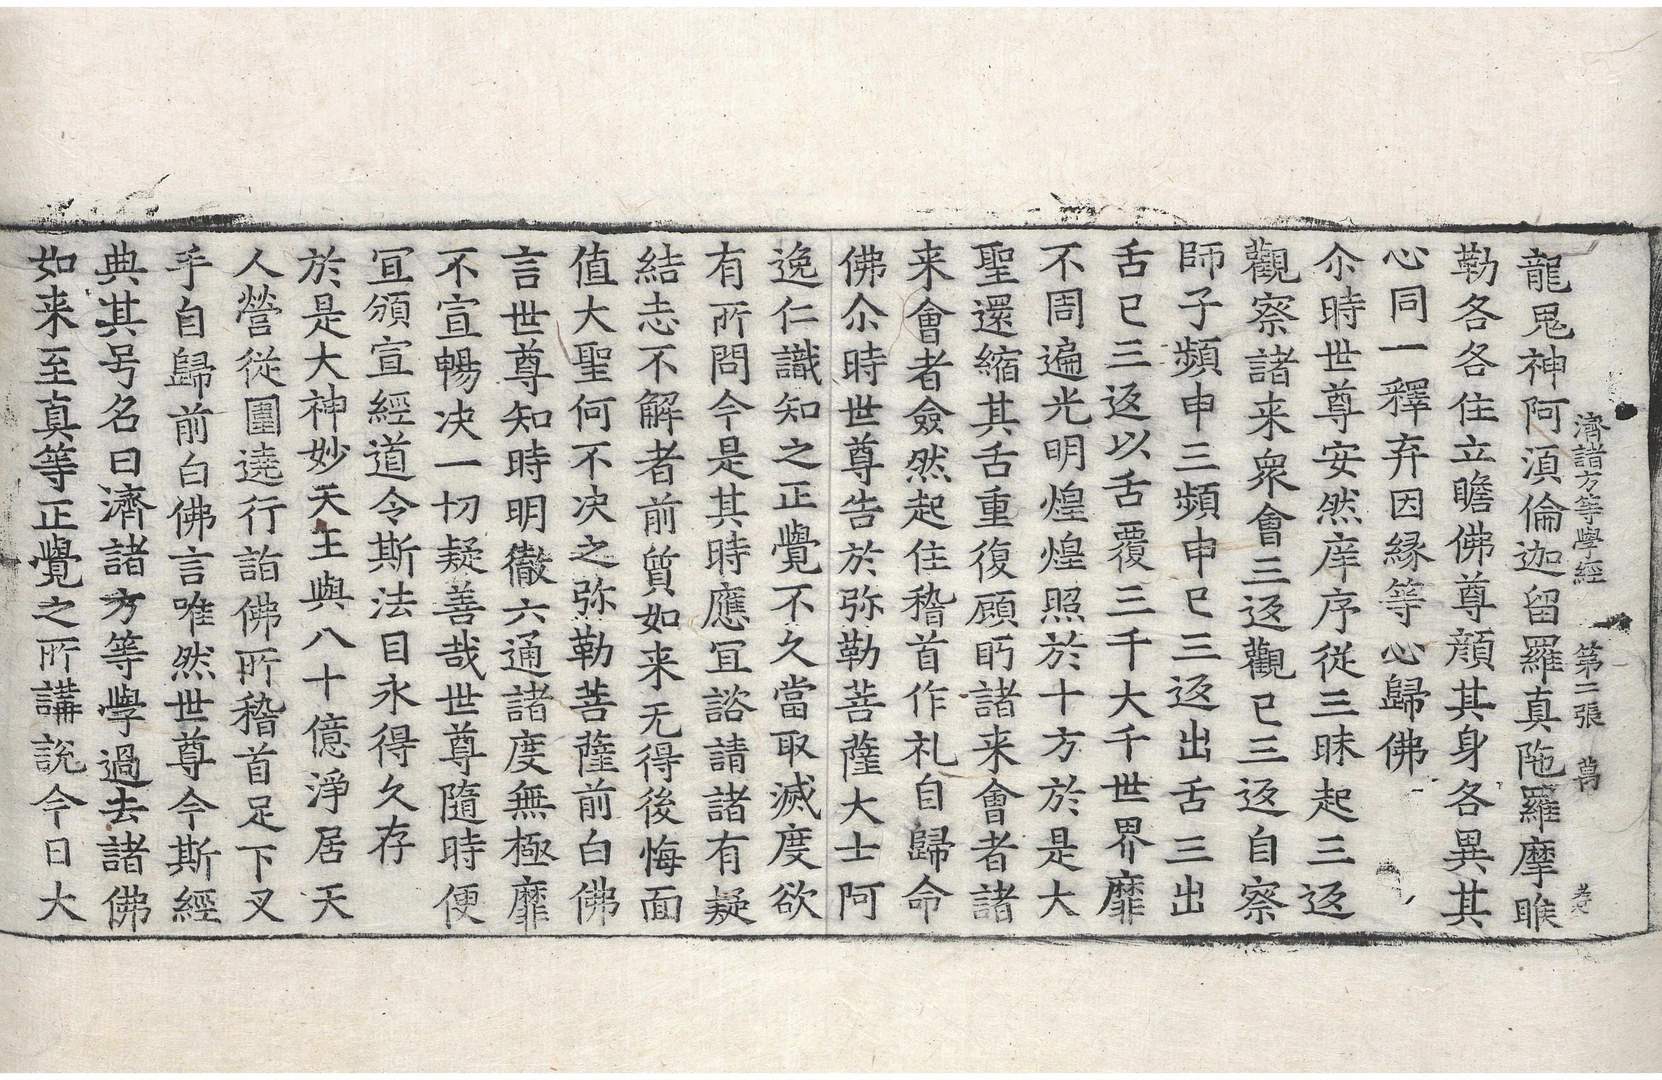 濟諸方等學經　第二張　萬
龍鬼神阿湏倫迦留羅真陁羅摩睺
勒各各住立瞻佛尊顔其身各異其
心同一釋弃因縁等心歸佛
尒時世尊安然庠序從三昧起三返
觀察諸来衆會三返觀已三返自察
師子頻申三頻申已三返出舌三出
舌已三返以舌覆三千大千世界靡
不周遍光明煌煌照於十方於是大
聖還縮其舌重復顧眄諸来會者諸
来會者僉然起住稽首作礼自歸命
佛尒時世尊告於弥勒菩薩大士阿
逸仁識知之正覺不久當取滅度欲
有所問今是其時應冝諮請諸有疑
結志不解者前質如来无得後悔面
值大聖何不决之弥勒菩薩前白佛
言世尊知時明徹六通諸度無極靡
不宣暢决一切疑善哉世尊隨時便
冝頒宣經道令斯法目永得久存
於是大神妙天王與八十億淨居天
人營從圍遶行詣佛所稽首足下叉
手自歸前白佛言唯然世尊今斯經
典其号名曰濟諸方等學過去諸佛
如来至真等正覺之所講說今日大